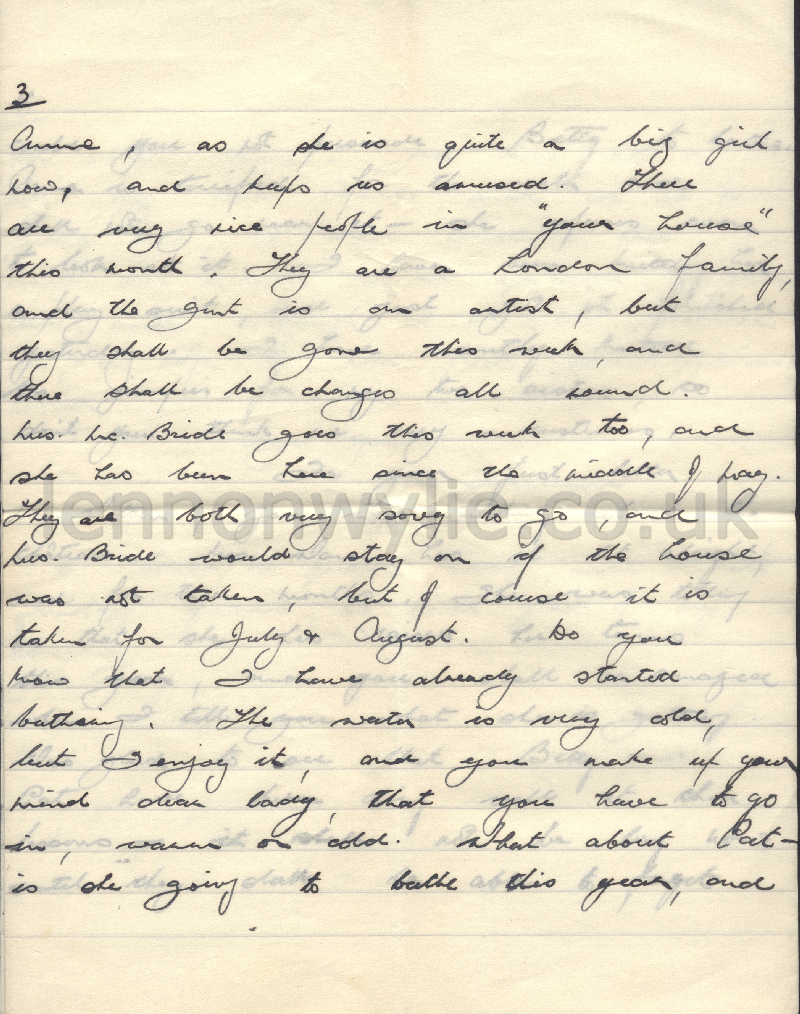 3
Anne, as she is quite a big girl
now, and keeps us amused. There
are very nice people in "your house"
this month. They are a London family,
and the gent is an artist, but
they shall be gone this week, and
there shall be changes all round.
Mrs. Mc. Bride goes this week too, and
she has been here since the middle of May.
They are both very sorry to go, and
Mrs. Bride would stay on if the house
was not taken, but of course it is
taken for July & August. Do you
know that I have already started
bathing. The water is very cold,
but I enjoy it, and you make up your
mind dear lady, that you have to go
in, warm or cold. What about Pat—
is she going to bathe this year, and
lennonwylie.co.uk